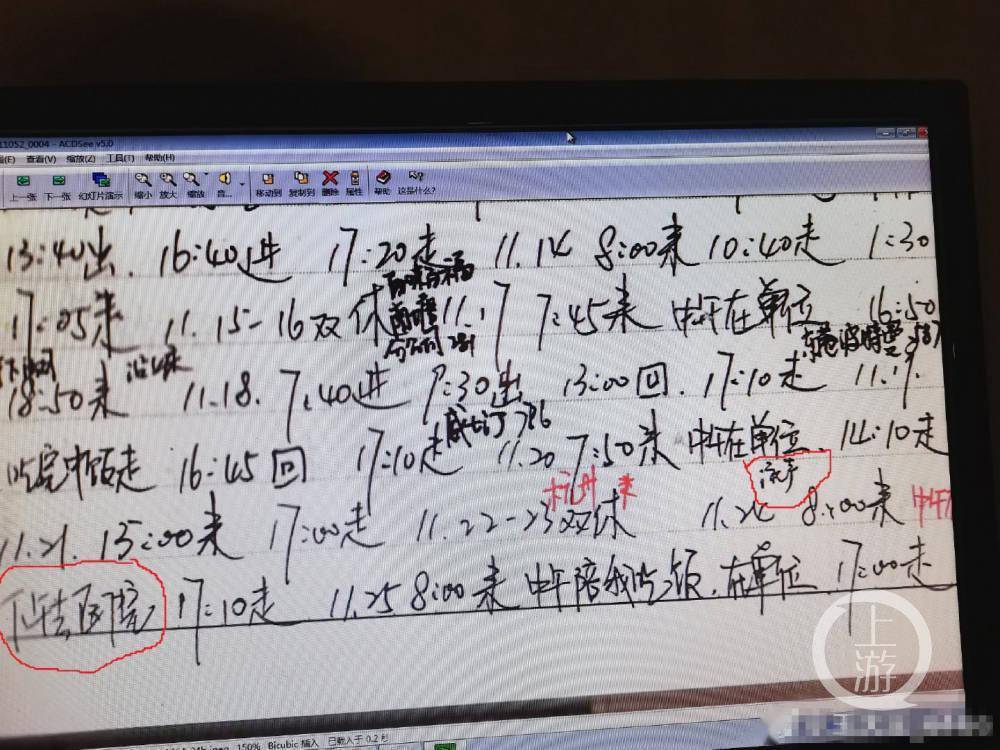 11052_0004 - ACDSee v5.0
(E) 查看(V) 缩放(Z) 工具(T) 帮助(H)
上一张 下一张 幻灯片演示 缩小 放大 缩放 音... 移动到 复制到 删除 属性 帮助 这是什么?
13:40出. 16:40进 17:20走 11.14 8:00来 10:40走 1:30
17:05来 11.15-16双休 11.17 7:45来 中午在单位 16:50
18:50来 11.18. 7:40进 9:30出 13:00回. 17:10走 11.19.
吃完中饭走 16:45回 17:10走 11.20 7:50来 中午在单位 14:10走
流产
来
11.21. 15:00来 17:00走 11.22-23双休 11.24 8:00来 中午
下午去医院 17:10走 11.25 8:00来 中午陪我吃饭. 在单位. 17:00走
上游
150% Bicubic 插入 已载入于 0.2 秒